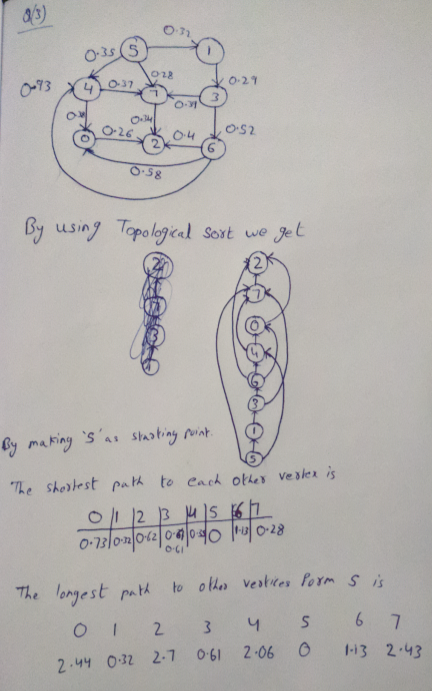 Q(3)
0.32
5 1
0.35 0.28 0.29
0.93
4 0.37 7 0.39 3
0.38 0.34 0.52
0 0.26 2 0.4 6
0.58
By using Topological sort we get
2
7
0
4
6
3
1
5
By making '5' as starting point.
The shortest path to each other vertex is
0 1 2 3 4 5 6 7
0.73 0.32 0.62 0.61 0.35 0 1.13 0.28
0.61
The longest path to other vertices form 5 is
0 1 2 3 4 5 6 7
2.44 0.32 2.7 0.61 2.06 0 1.13 2.43